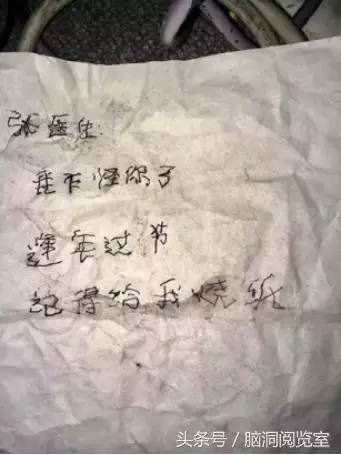 张医生:
我不怪你了
逢年过节
记得给我烧纸
头条号／脑洞阅览室